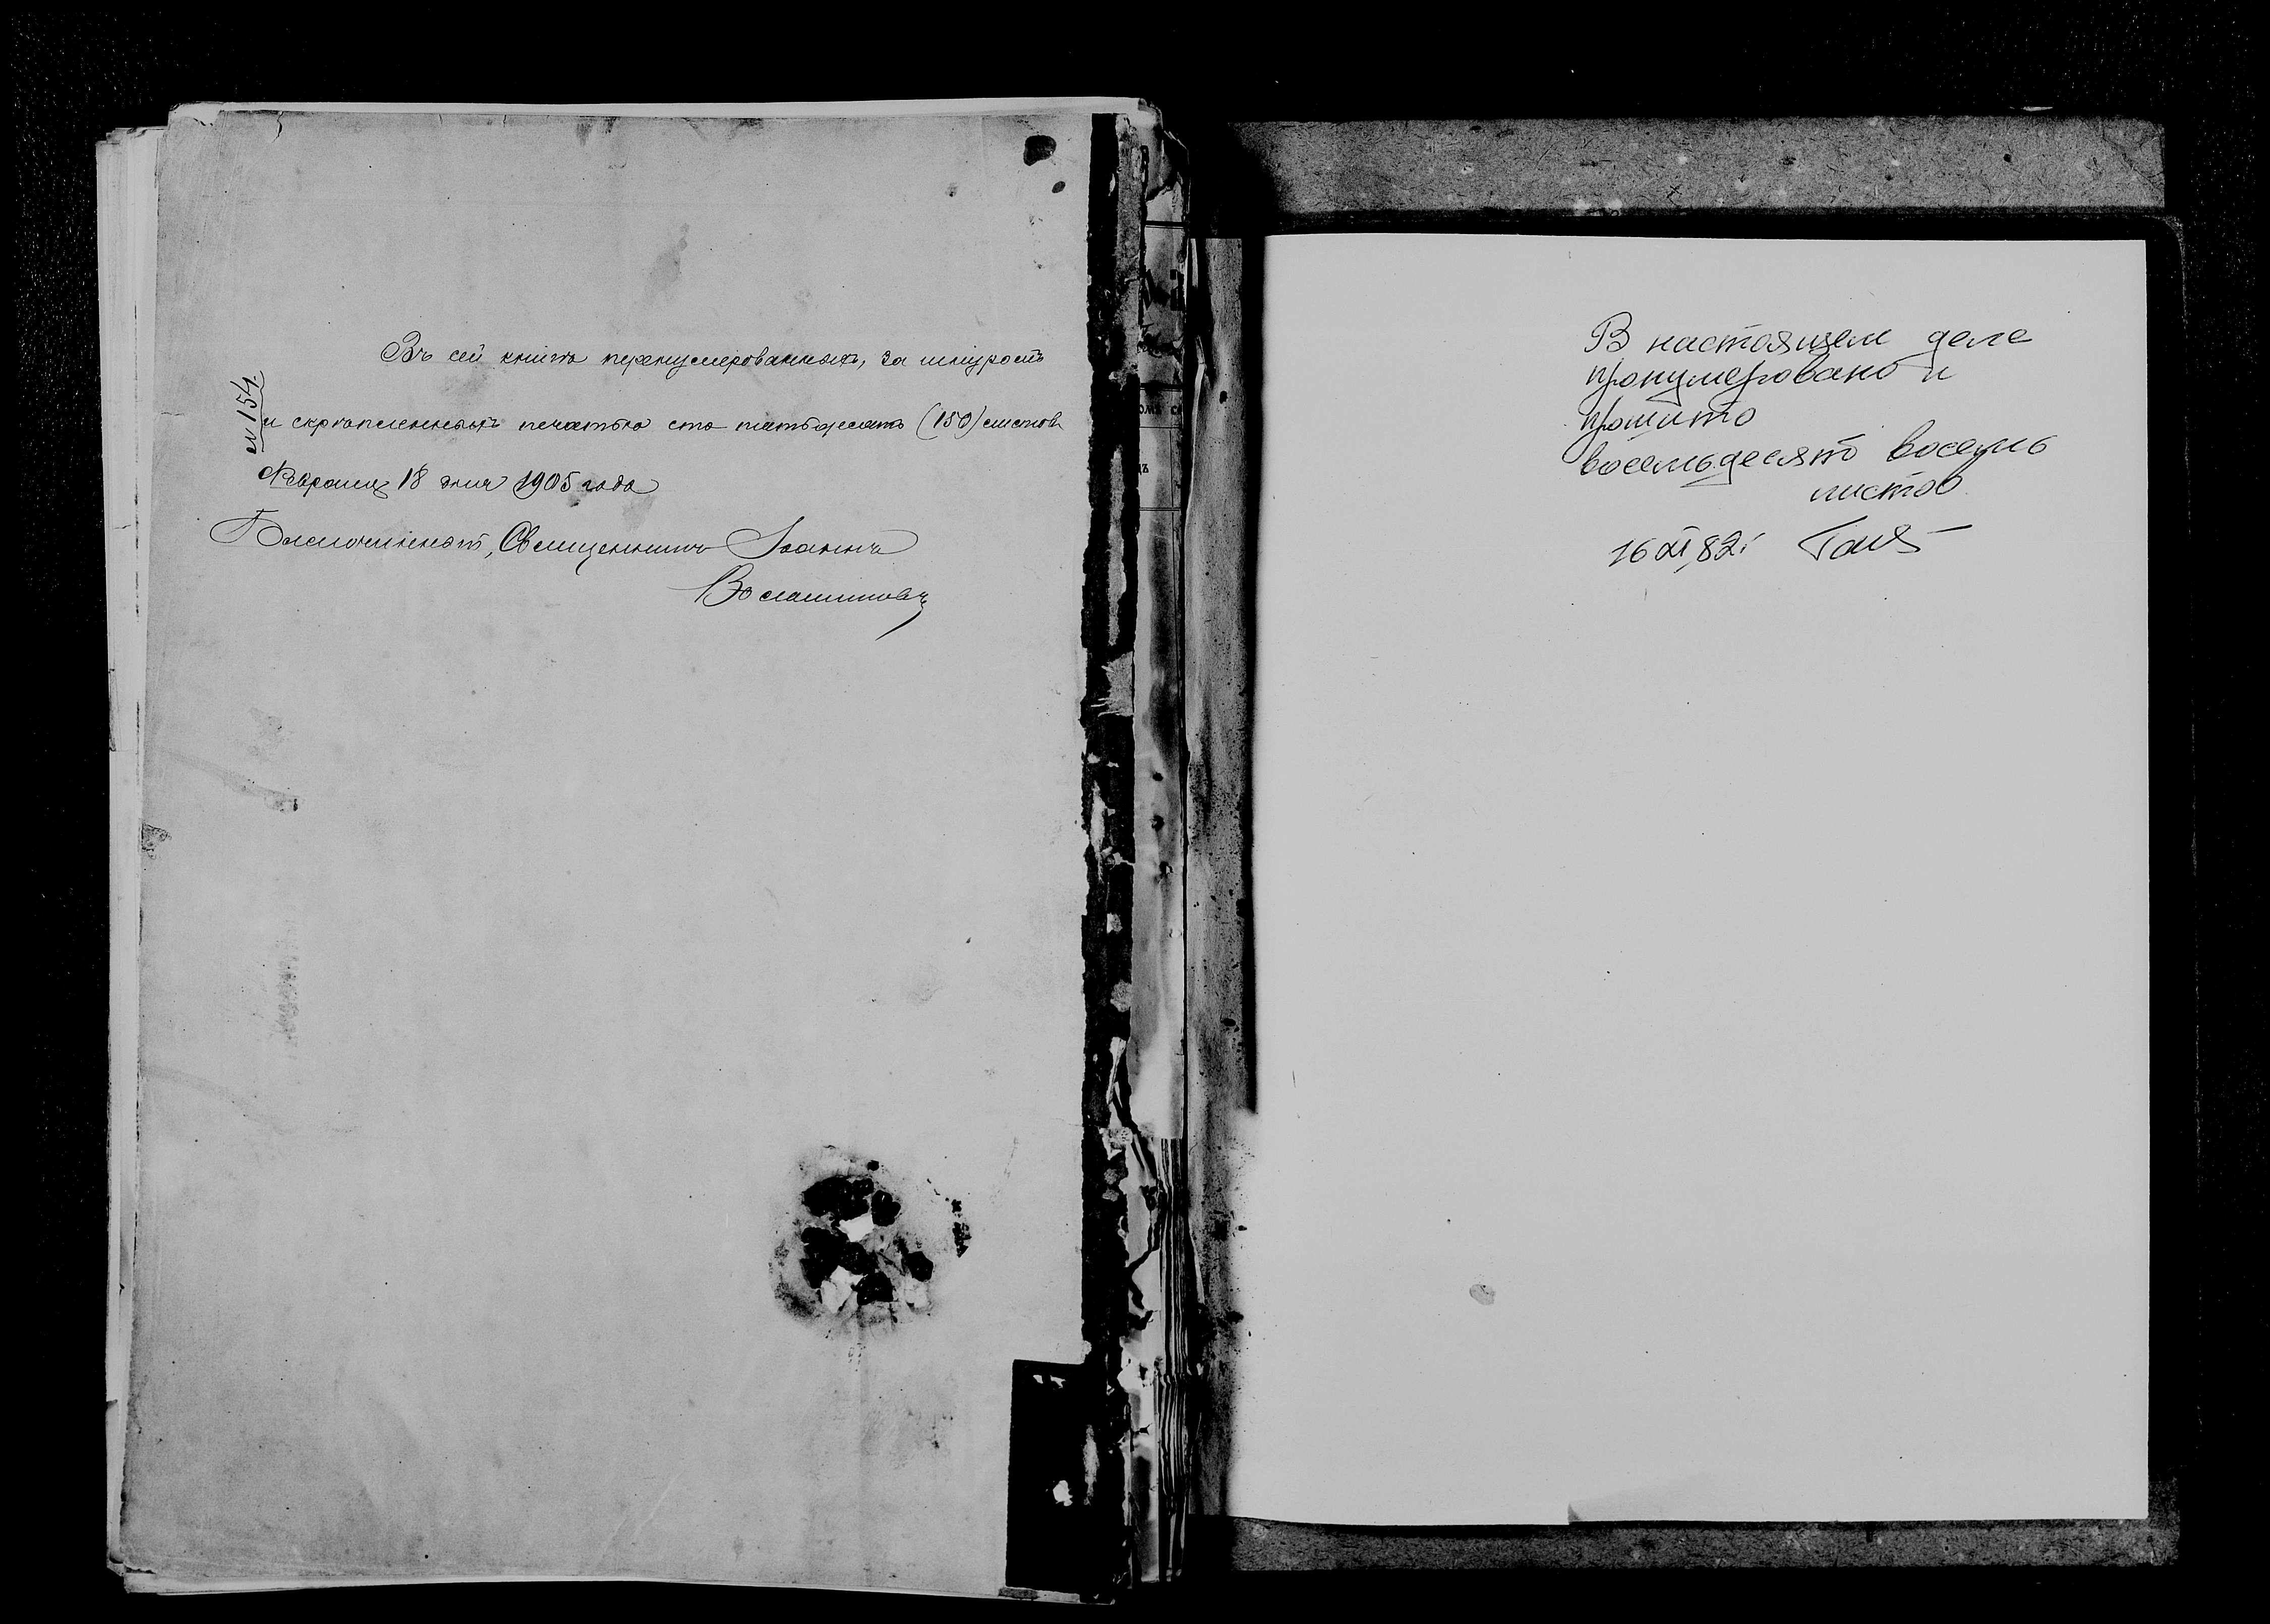 Въ сей книгѣ перенумерованныхъ, за шнуромъ
№ 154.
и скрѣпленныхъ печатью сто пятьдесятъ (150) листовъ
Февраля 18 дня 1905 года
Благочинный, Священникъ Іоаннъ
В настоящем деле
пронумеровано и
прошито
восемьдесят восемь
листов
16 XI 82г